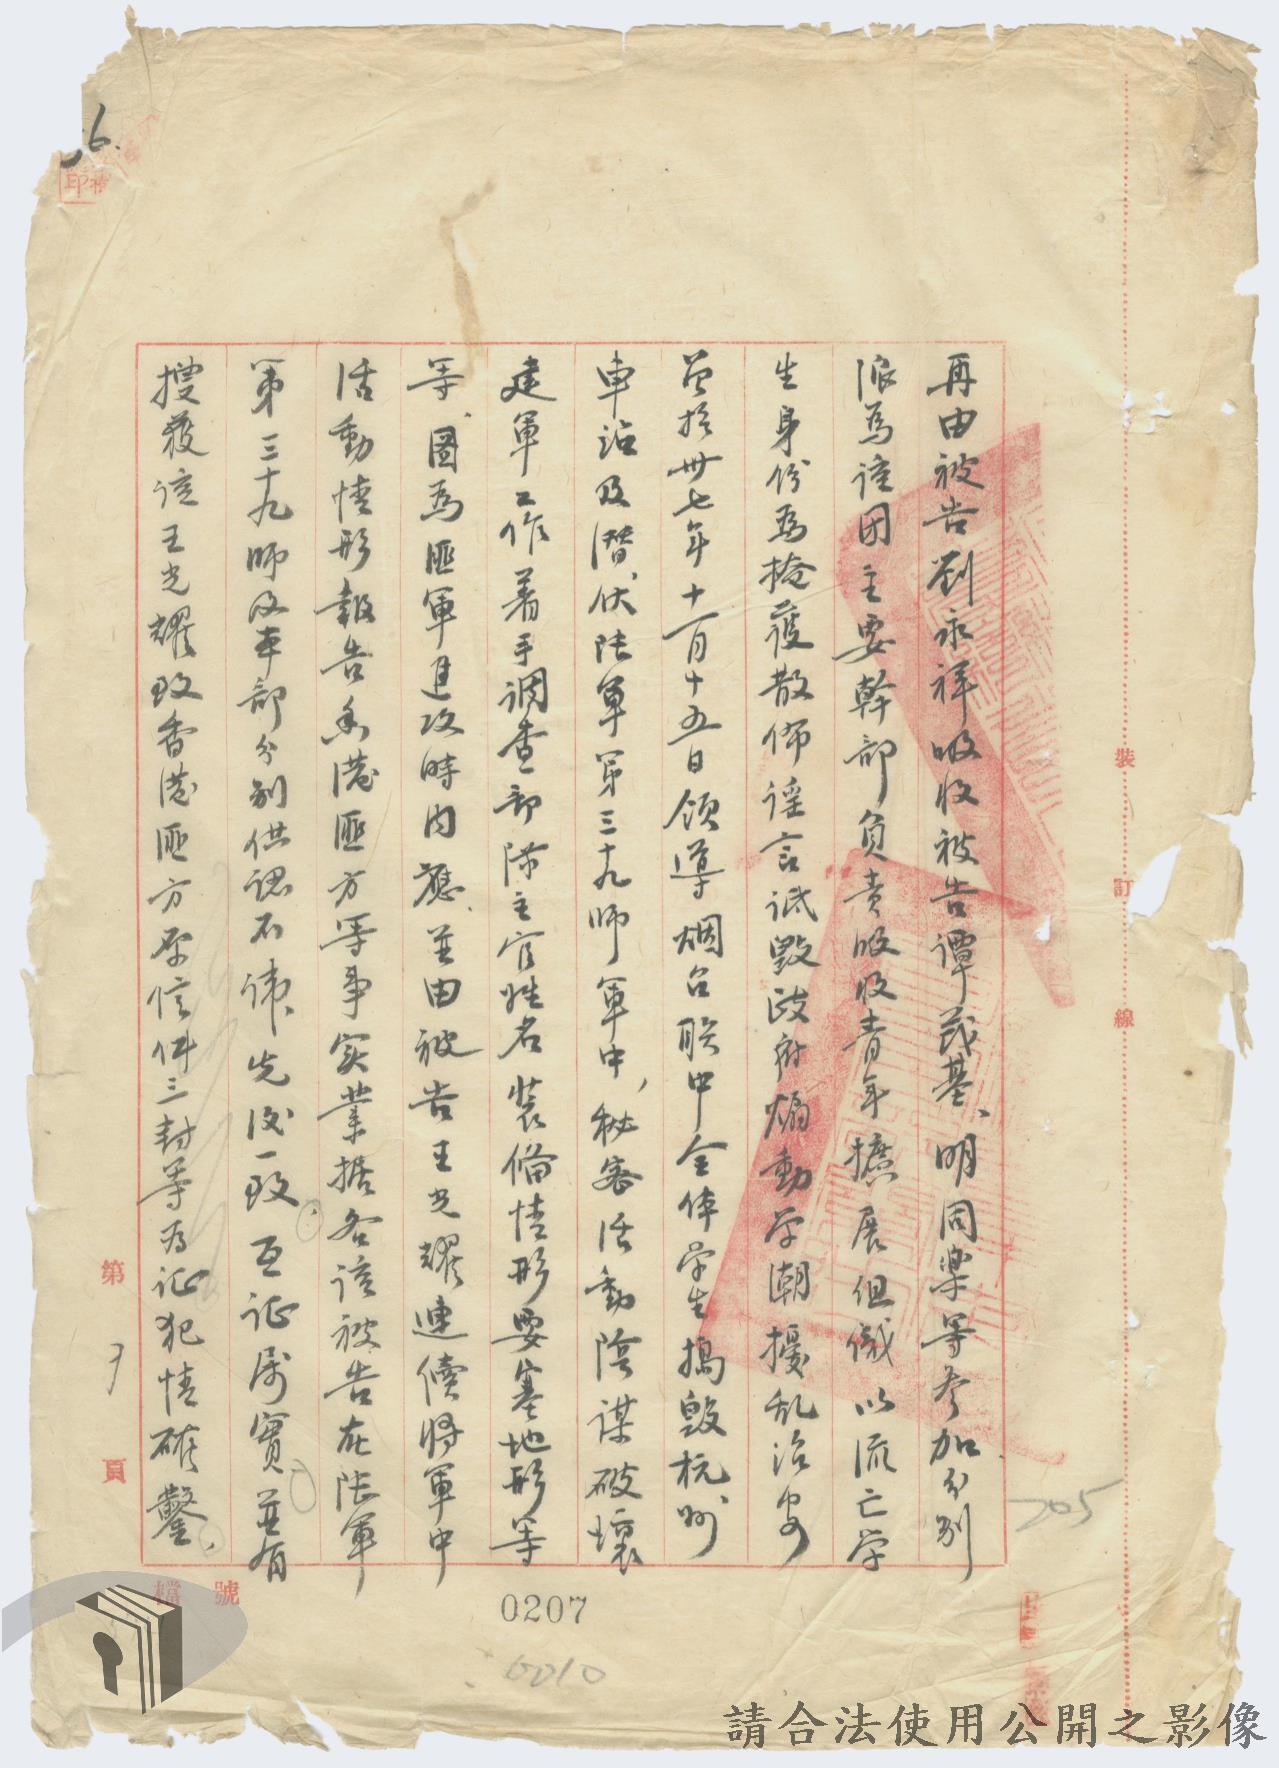 再由被告劉永祥吸收被告譚茂基、明同樂等參加分別
派為該团主要幹部負責吸收青年擴展组織以流亡学
生身份為掩護散佈谣言诋毀政府煽動学潮擾乱治安
並於卅七年十一月十五日領導烟台联中全体学生搗毀杭州
車站及潛伏陸軍第三十九师軍中，秘密活動陰谋破壞
建軍工作着手调查部隊主官姓名装備情形要塞地形等
等、圖為匪軍進攻時内應、並由被告王光耀連續將軍中
活動情形報告香港匪方等事实業据各该被告在陸軍
第三十九师及本部分别供認不讳、先後一致、互证屬實、並有
搜獲该王光耀致香港匪方原信件三封等為证犯情確鑿、
第 頁
檔 號
裝 訂 線
0207
6010
205
印
請合法使用公開之影像